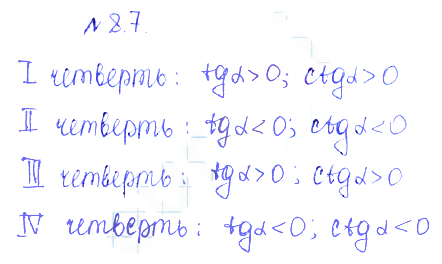 № 8.7.
I четверть: tgα>0; ctgα>0
II четверть: tgα<0; ctgα<0
III четверть: tgα>0; ctgα>0
IV четверть: tgα<0; ctgα<0